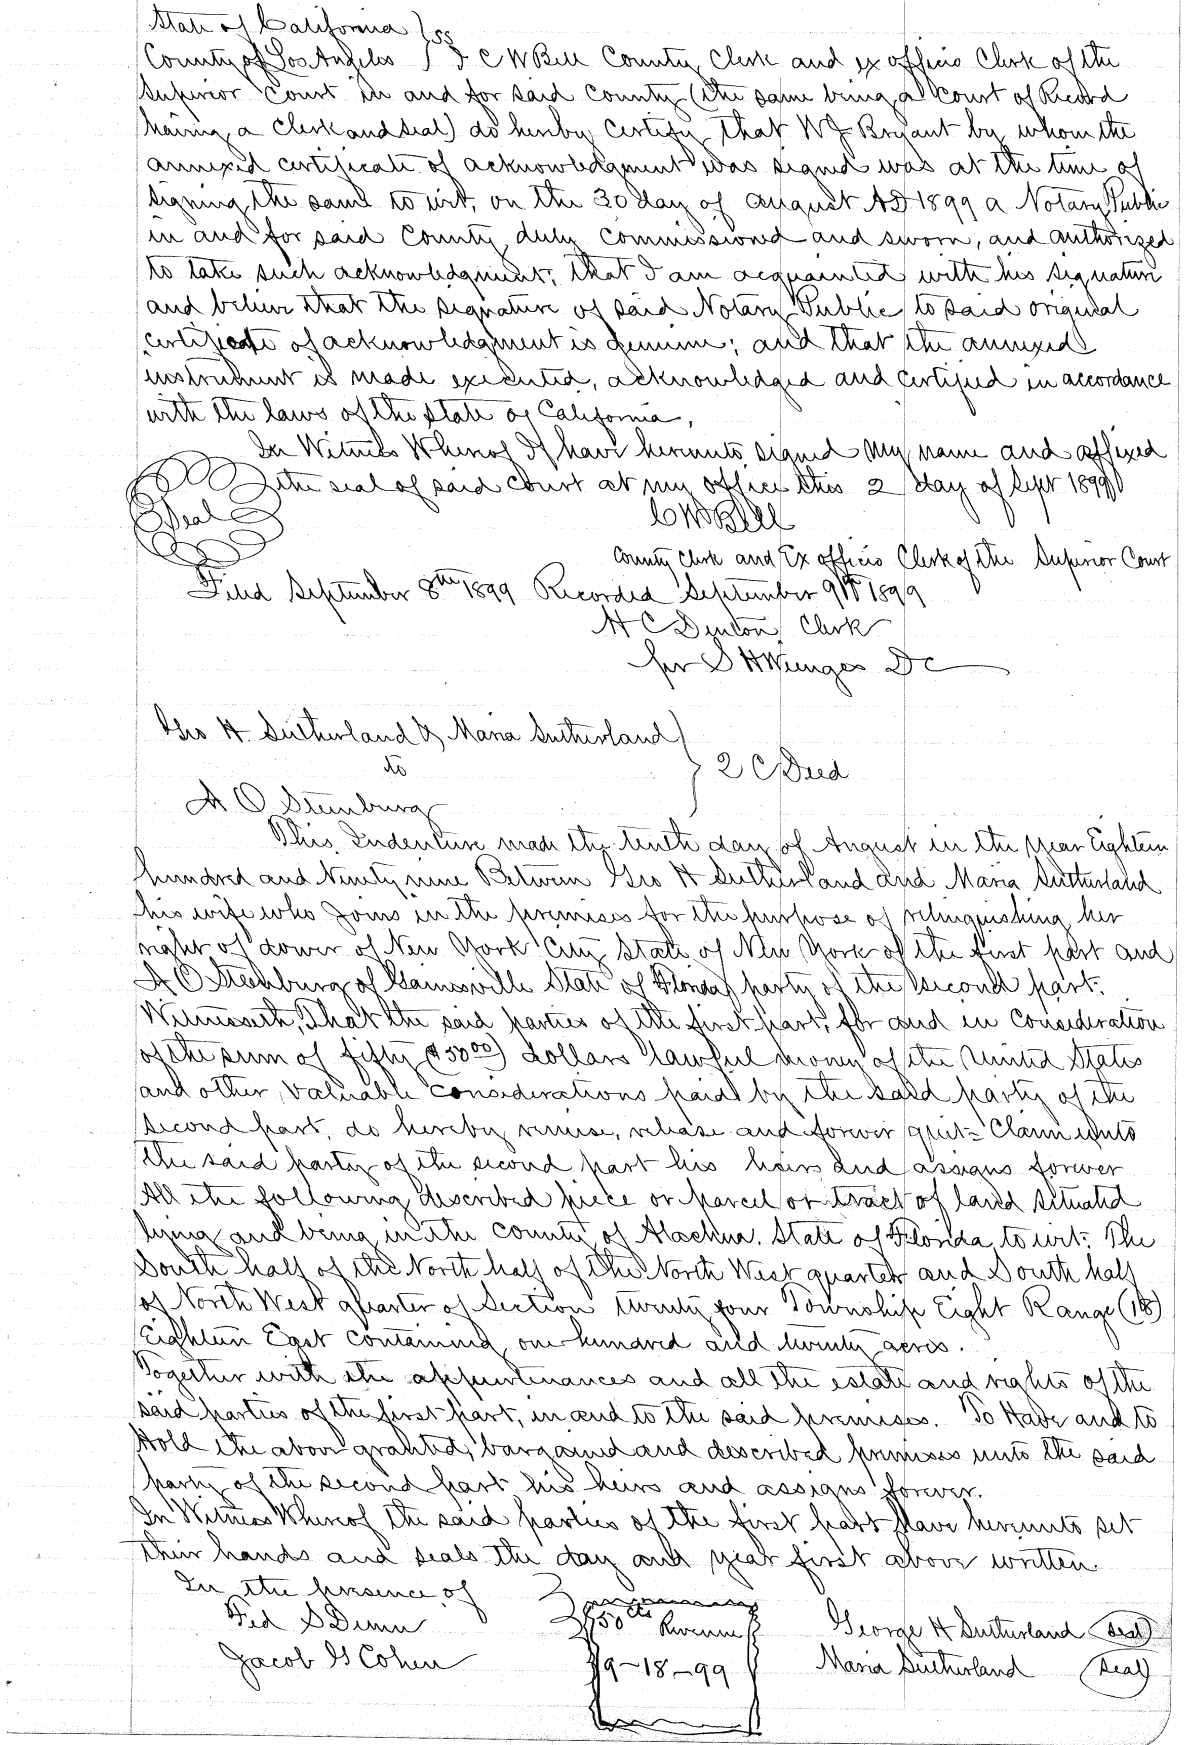 State of California } ss
County of Los Angeles } I C W Bell County Clerk and ex officio Clerk of the
Superior Court in and for said County (the same being a Court of Record
having a Clerk and seal) do hereby certify that W J Bryant by whom the
annexed certificate of acknowledgment was signed was at the time of
signing the same to wit, on the 30 day of August AD 1899 a Notary Public
in and for said County, duly commissioned and sworn, and authorized
to take such acknowledgment; that I am acquainted with his signature
and believe that the signature of said Notary Public to said original
certificate of acknowledgment is genuine; and that the annexed
instrument is made executed, acknowledged and certified in accordance
with the laws of the State of California,
In Witness Whereof I have hereunto signed my name and affixed
the seal of said Court at my office this 2 day of Sept 1899
Seal
C W Bell
County Clerk and Ex officio Clerk of the Superior Court
Filed September 8th 1899 Recorded September 9th 1899
H C Denton, Clerk
per S H Wienges DC
Geo H Sutherland & Maria Sutherland
to } 2 C Deed
A O Steenburg
This Indenture made the tenth day of August in the year Eighteen
hundred and Ninety nine Between Geo H Sutherland and Maria Sutherland
his wife who joins in the premises for the purpose of relinquishing her
right of dower of New York City State of New York of the first part and
A O Steenburg of Gainesville State of Florida, party of the second part.
Witnesseth, That the said parties of the first part, for and in consideration
of the sum of fifty ($50 00) dollars lawful money of the United States
and other valuable considerations paid by the said party of the
second part, do hereby remise, release and forever quit-claim unto
the said party of the second part his heirs and assigns forever
All the following described piece or parcel or tract of land situated
lying and being in the County of Alachua, State of Florida, to wit: The
South half of the North half of the North West quarter and South half
of North West quarter of Section twenty four Township Eight Range (18)
Eighteen East containing one hundred and twenty acres.
Together with the appurtenances and all the estate and rights of the
said parties of the first part, in and to the said premises. To Have and to
Hold the above granted, bargained and described premises unto the said
party of the second part his heirs and assigns forever.
In Witness Whereof the said parties of the first part have hereunto set
their hands and seals the day and year first above written.
In the presence of
Fred S Dunn 50 cts Revenue George H Sutherland (seal)
Jacob G Cohen 9-18-99 Maria Sutherland (seal)